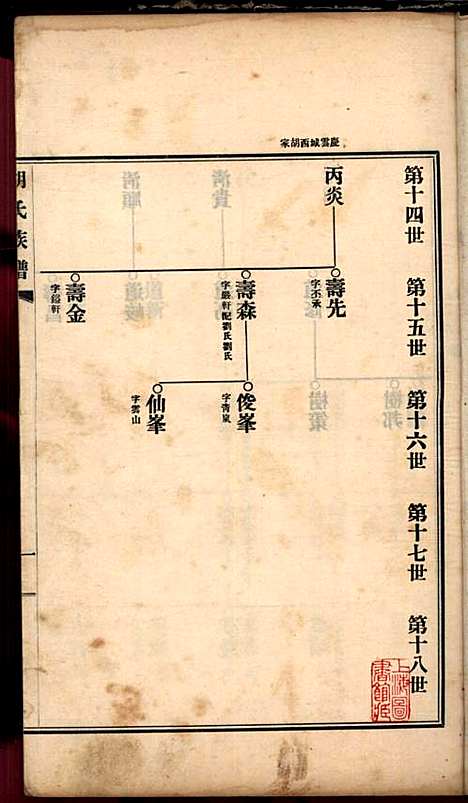 慶雲城西胡家
第十四世
第十五世
第十六世
第十七世
第十八世
丙炎
壽先
字丕承
壽森
字嚴軒配劉氏劉氏
壽金
字鎔軒
俊峯
字秀嵐
仙峯
字雲山
胡氏族譜
上海圖
書館藏